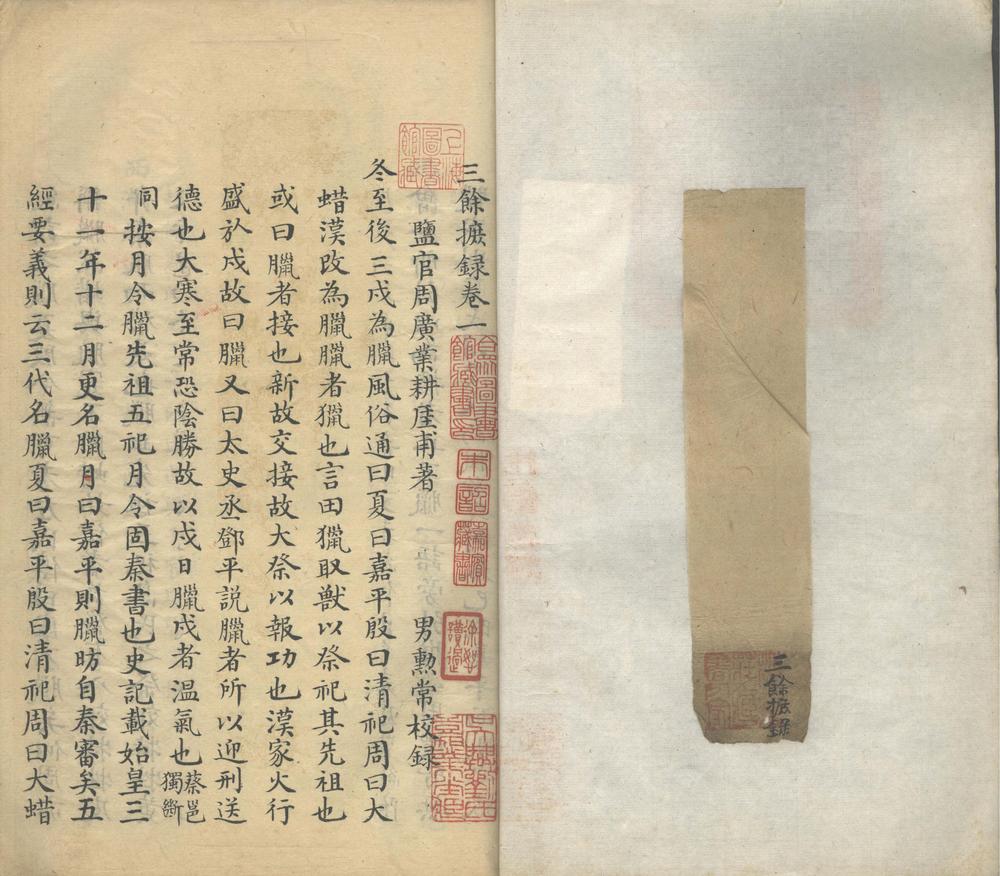 三餘摭録
上海圖書館藏
三餘摭録卷一
鹽官周廣業耕厓甫著　男勲常校録
冬至後三戌為臘風俗通曰夏曰嘉平殷曰清祀周曰大
蜡漢改為臘臘者獵也言田獵取獸以祭祀其先祖也
或曰臘者接也新故交接故大祭以報功也漢家火行
盛於戌故曰臘又曰太史丞鄧平説臘者所以迎刑送
德也大寒至常恐陰勝故以戌日臘戌者温氣也蔡邕獨斷
同按月令臘先祖五祀月令固秦書也史記載始皇三
十一年十二月更名臘月曰嘉平則臘昉自秦審矣五
經要義則云三代名臘夏曰嘉平殷曰清祀周曰大蜡